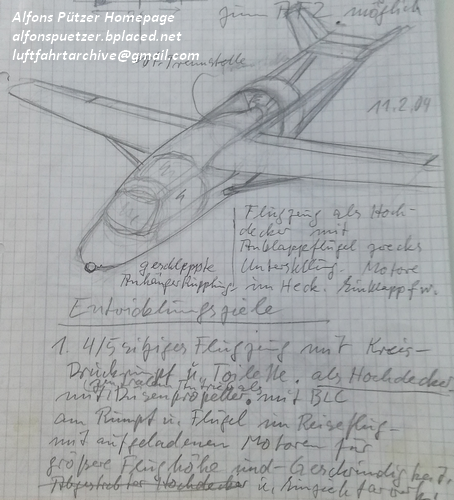 zum ATZ. möglich
Alfons Pützer Homepage
alfonspuetzer.bplaced.net
luftfahrtarchive@gmail.com
11.2.04
Flugzeug als Hoch-
decker mit
Anklappflügel zwecks
Unterstellung. Motore
im Heck. Einklappfw.
geschleppte
Anhängerkupplung
Entwicklungsziele
1. 4/5 sitziges Flugzeug mit Kreis-
Druckrumpf u. Toilette. als Hochdecker
mit Düsenpropeller. mit BLC
am Rumpf u. Flügel im Reiseflug-
mit aufgeladenen Motoren für
größere Flughöhe und -Geschwindigkeit.
Hochdecker u.